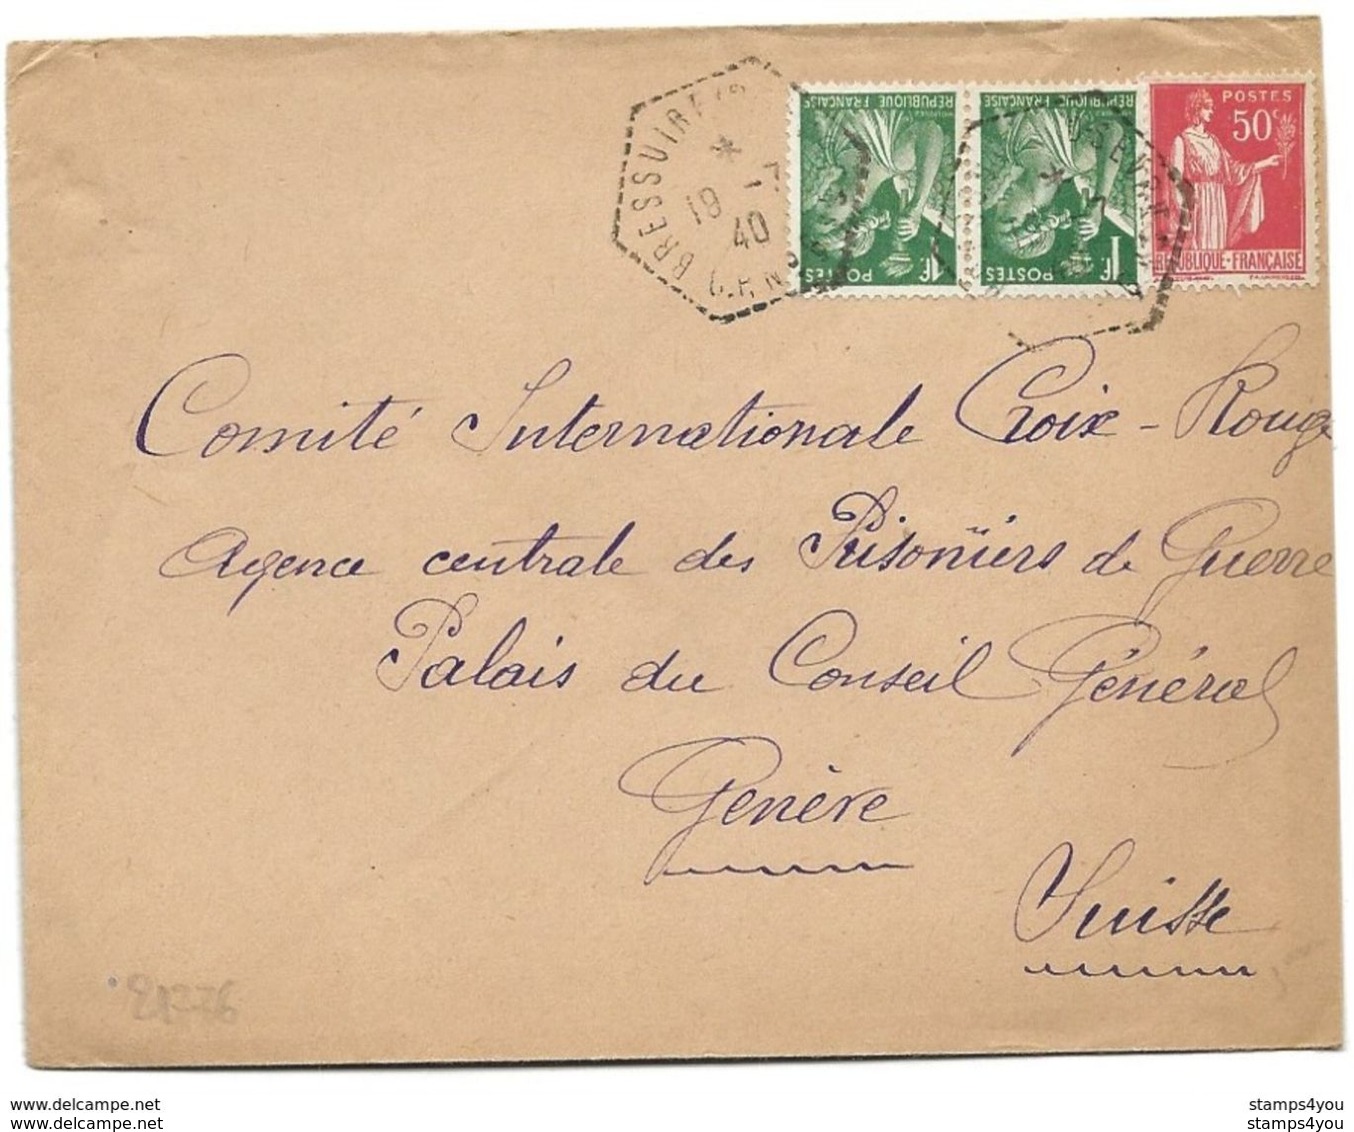 BRESSUIRE
19 -7
40
REPUBLIQUE FRANÇAISE
POSTES
1F.
REPUBLIQUE FRANÇAISE
POSTES
1F.
POSTES
50c
REPUBLIQUE-FRANÇAISE
Comité Internationale Croix-Rouge
Agence centrale des Prisonïers de Guerre
Palais du Conseil Général
Genève
Suisse
www.delcampe.net
www.delcampe.net
stamps4you
stamps4you